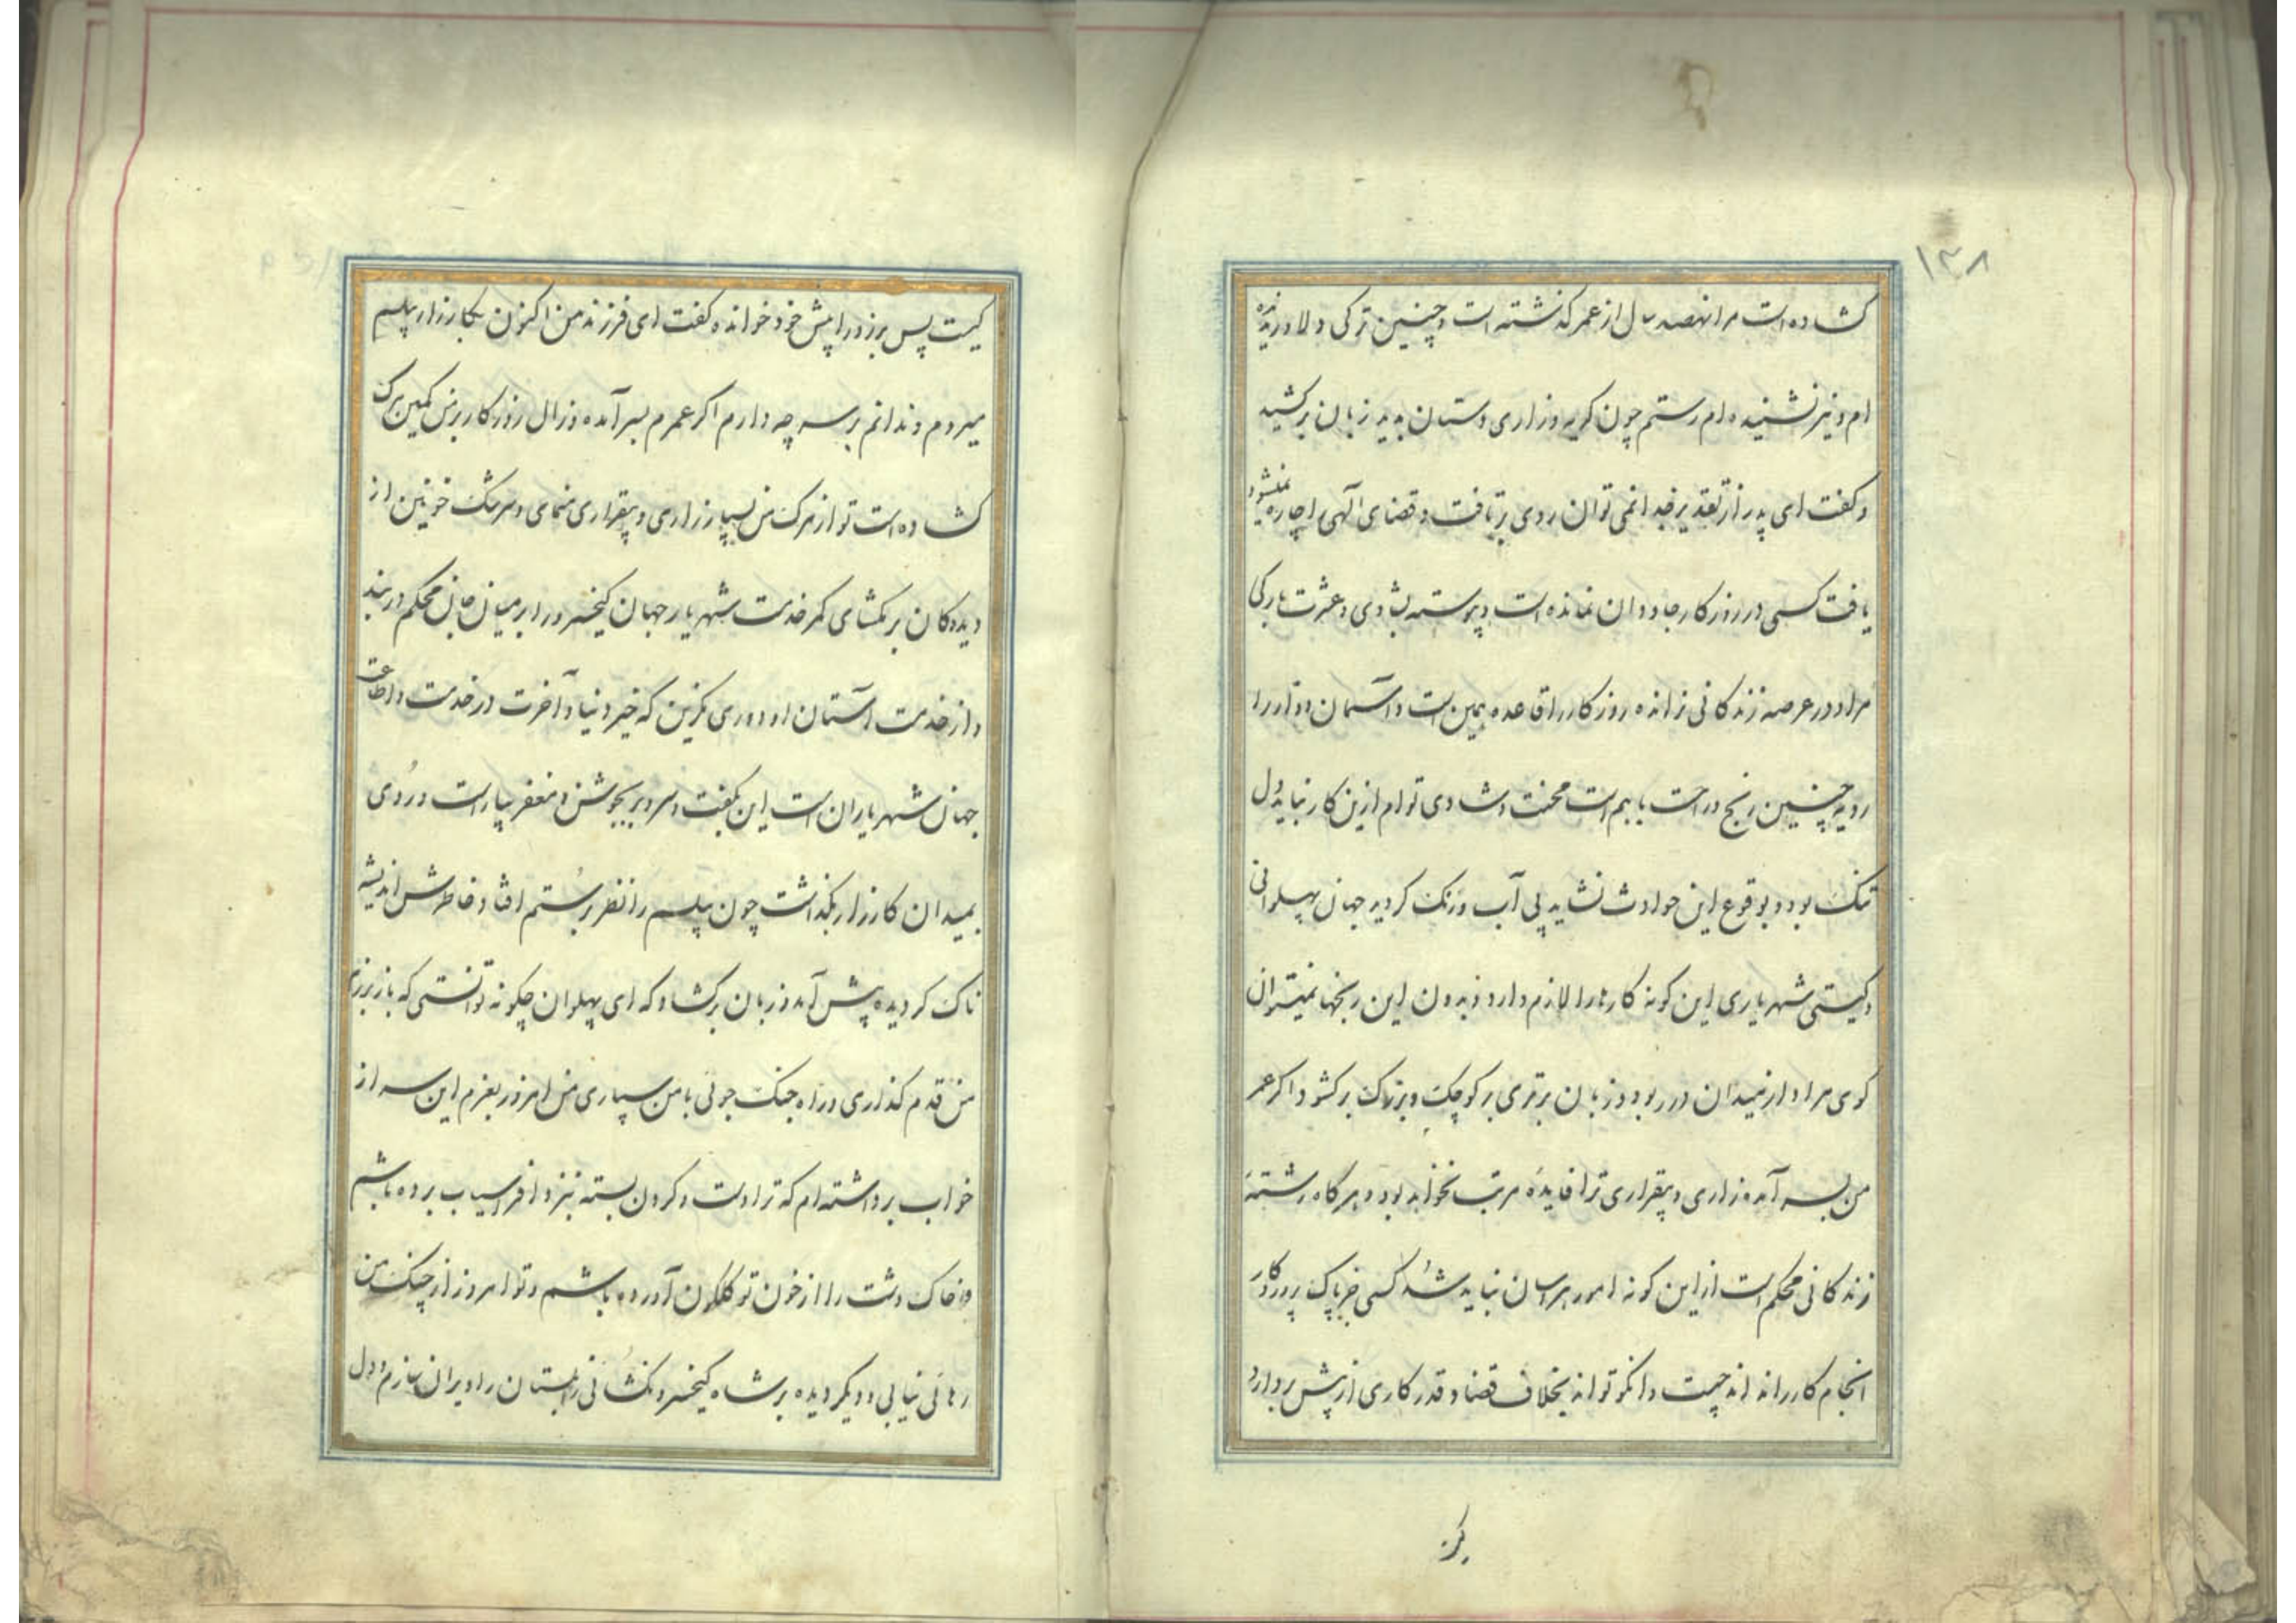 ۱۳۸
کشاده است مرا نهصد سال از عمر گذشته است و چنین ترکی دلاور ندیده
ام و نیز نشنیده ام رستم چون گریه و زاری دستان بدید زبان برکشید
و گفت ای پدر از تقدیر خدا نمی توان روی برتافت و قضای الهی را چاره نمیشود
یافت کسی در روزگار جاودان نمانده است و پیوسته بشادی و عشرت بارکی
مراد در عرصه زندگانی نرانده روزگار را قاعده همین است و آسمان دوار را
رویه چنین رنج و راحت باهم است محنت و شادی توام ازین کار نباید دل
تنگ بود و بوقوع این حوادث نشاید بی آب و رنگ گردید جهان پهلوانی
و گیتی شهریاری این گونه کارها را لازم دارد و بدون این رنجها نمیتوان
گوی مراد از میدان در ربود و زبان برتری بر کوچک و بزرگ برکشود اگر عمر
من بسر آمده زاری و بیقراری ترا فایده مرتب نخواهد بود و هرگاه رشتهٔ
زندگانی محکم است از این گونه امور هراسان نباید شد کسی جز پاک پروردگار
انجام کار را نداند چیست و انکو تواند بخلاف قضا و قدر کاری از پیش بردارد
کیست پس برزو را پیش خود خوانده گفت ای فرزند من اکنون بکارزار پیلسم
میروم و ندانم بر سر چه دارم اگر عمرم بسر آمده و زال روزگار بر من کمین مرگ
کشاده است تو از مرگ من بسیار زاری و بیقراری منمای و سرشک خونین از
دیدگان برمکشای کمر خدمت شهریار جهان کیخسرو را بر میان جان محکم دربند
و از خدمت آستان او دوری مگزین که خیر دنیا و آخرت در خدمت و اطاعت
جهان شهریاران است این بگفت و سر و بر بجوشن و مغفر بیاراست و روی
بمیدان کارزار بگذاشت چون پیلسم را نظر بر رستم افتاد خاطرش اندیشه
ناک گردیده پیش آمد و زبان برکشاد که ای پهلوان چگونه توانستی که باز برزم
من قدم گذاری و راه جنگ جوئی با من سپاری من امروز بعزم این سر از
خواب برداشته ام که ترا دست و گردن بسته بنزد افراسیاب برده باشم
و خاک دشت را از خون تو گلگون آورده باشم و تو امروز از چنگ من
رهائی نیابی و دیگر دیده بر شاه کیخسرو نگشائی زابلستان را ویران سازم و دل